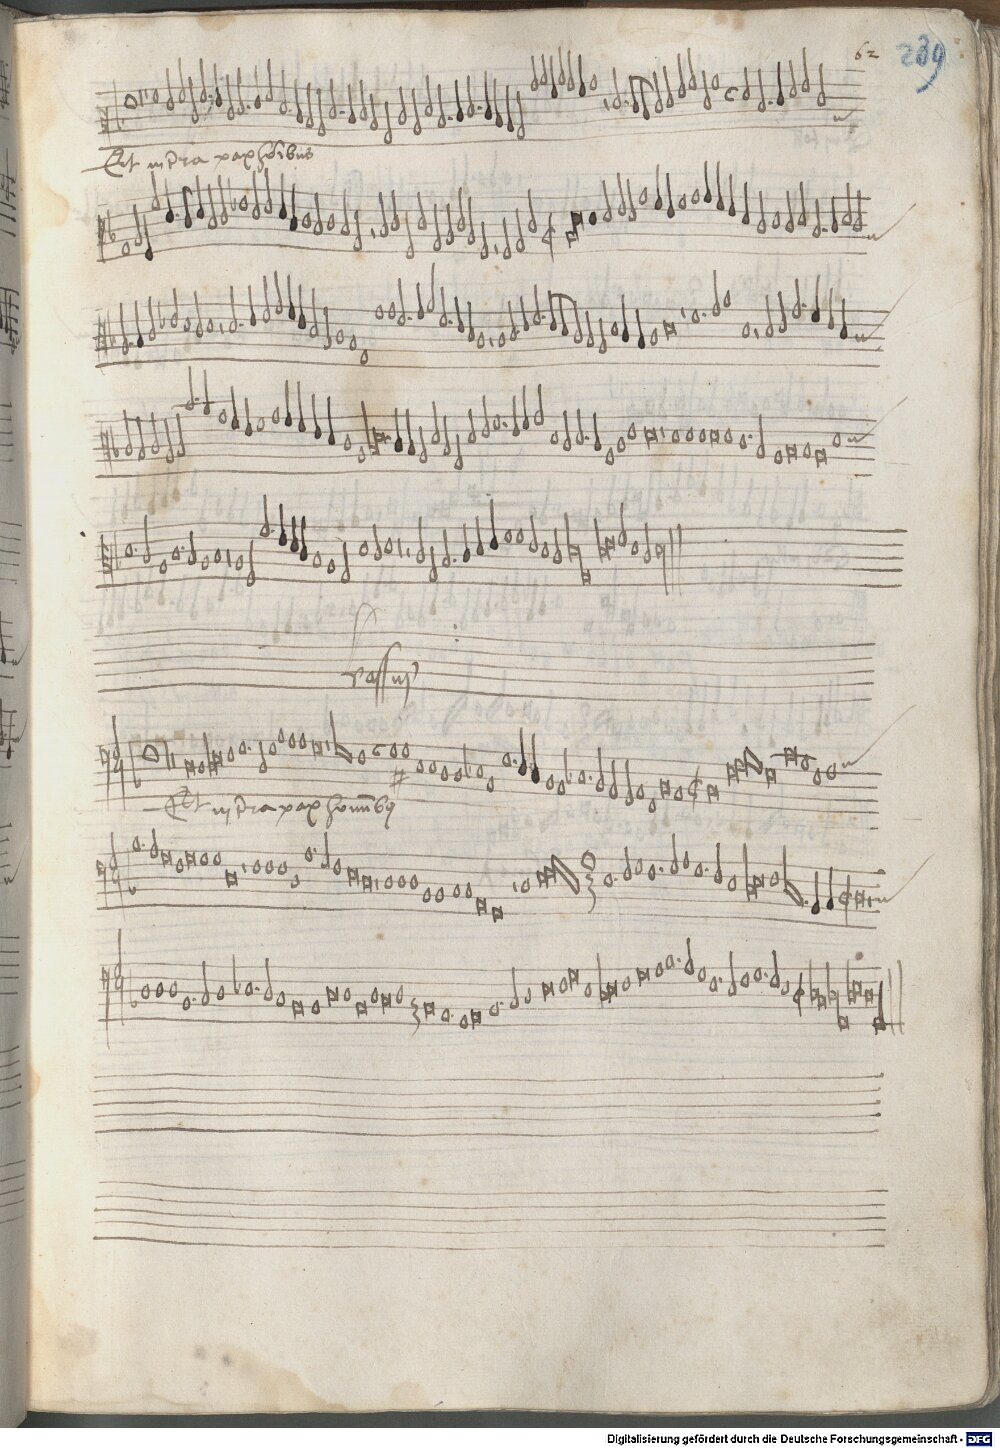 62 239
Et in t̄ra pax hoībus
vassus
Et in t̄ra pax homībꝯ
Digitalisierung gefördert durch die Deutsche Forschungsgemeinschaft - DFG